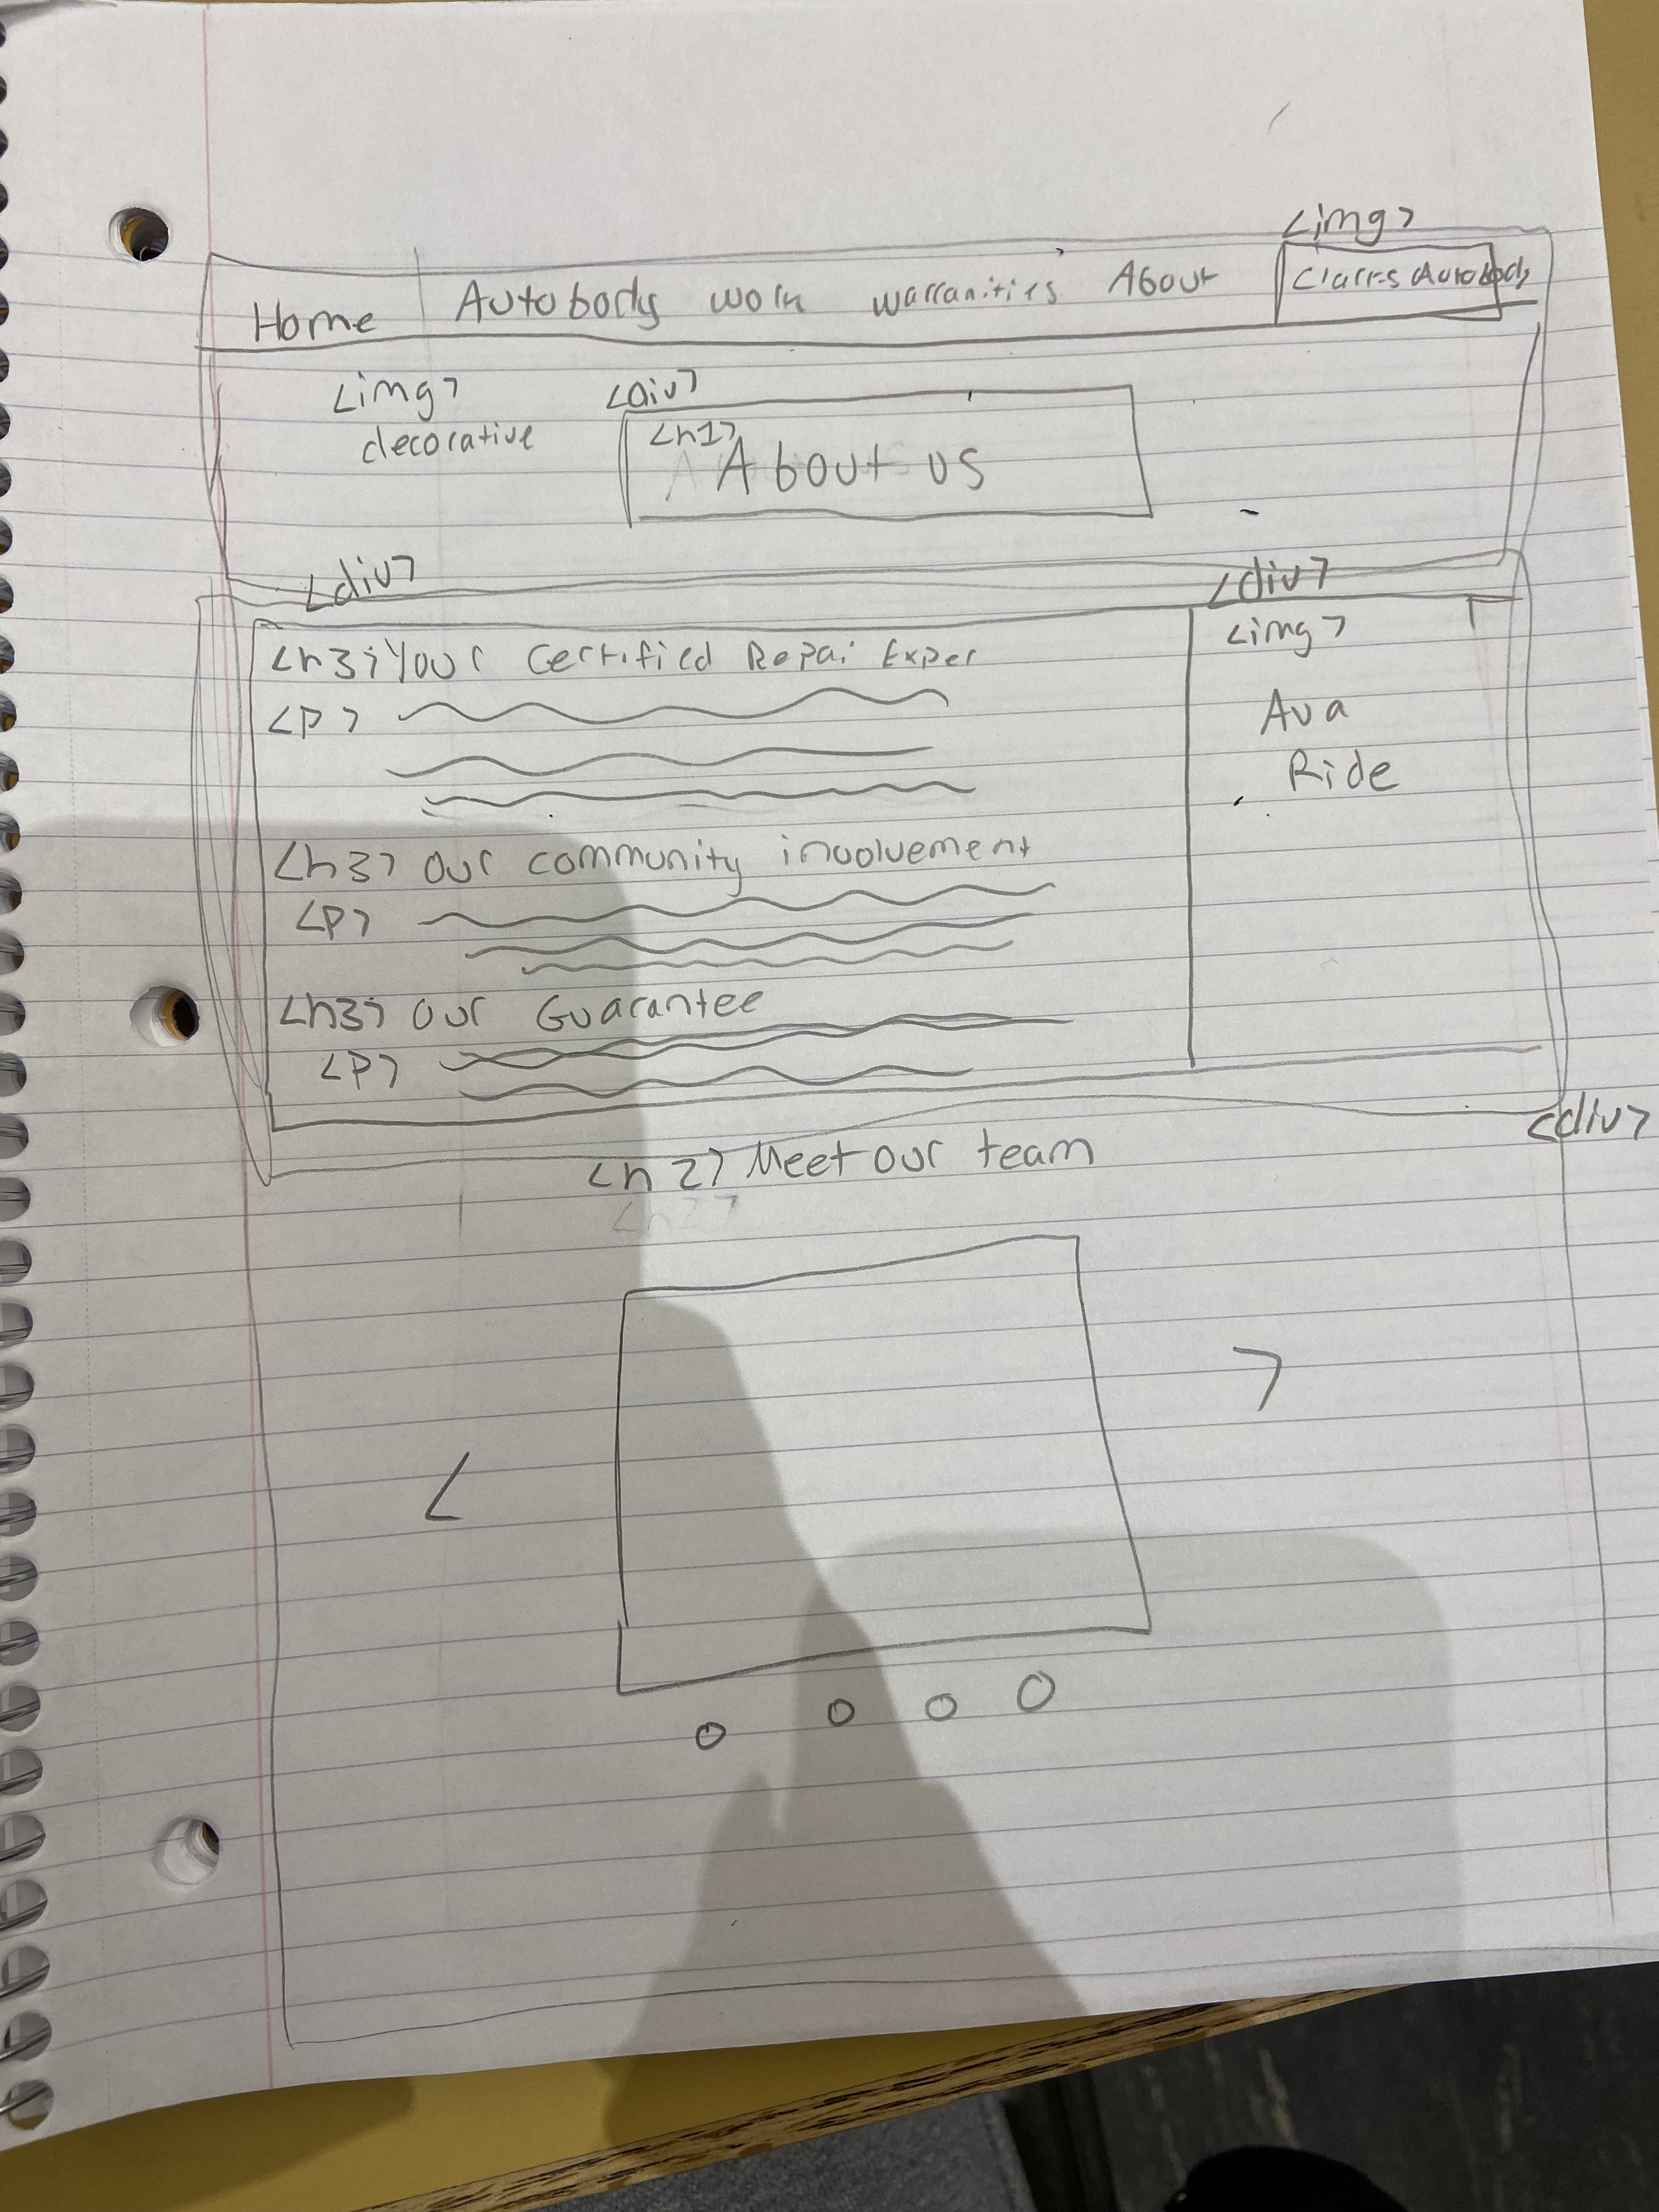 <img>
Home Autobody work warranities About Clarks Autobody
<img> <div>
decorative <h1> About us
<div> <div>
<h3> Your Certified Repai Exper <img>
<P> Ava
Ride
<h3> our community involvement
<P>
<h3> our Guarantee
<P>
<div>
<h2> Meet our team
<h2>
< >